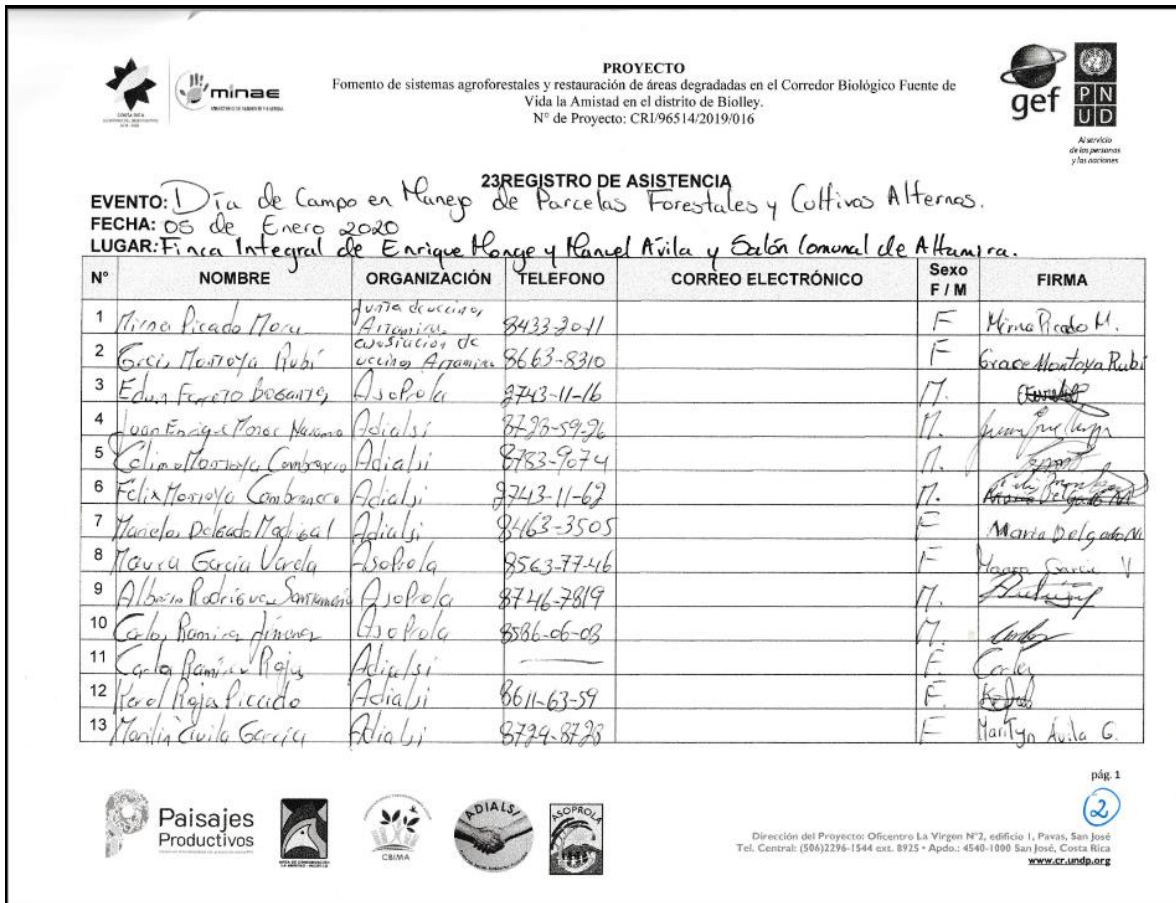 COSTA RICA
minae
PROYECTO
Fomento de sistemas agroforestales y restauración de áreas degradadas en el Corredor Biológico Fuente de
Vida la Amistad en el distrito de Biolley.
N° de Proyecto: CRI/96514/2019/016
gef
PN
UD
Al servicio
de las personas
y las naciones
23REGISTRO DE ASISTENCIA
EVENTO: Día de Campo en Manejo de Parcelas Forestales y Cultivos Alternos.
FECHA: 05 de Enero 2020
LUGAR: Finca Integral de Enrique Monge y Manuel Avila y Salón Comunal de Altamira.
N° NOMBRE ORGANIZACIÓN TELEFONO CORREO ELECTRÓNICO Sexo F / M FIRMA
1 Mirna Picado Mora 8433-2011 F Mirna Picado M.
2 Montoya Rubí 8663-8310 F Grace Montoya Rubi
3 AsoProla 2743-11-16 M.
4 Juan Enrique Navarro Adialsi 8728-59-26 M.
5 Montoya Adialsi 8783-9074 M.
6 Felix Montoya Adialsi 2743-11-62 M.
7 Delgado Madrigal Adialsi 8463-3505 F Maria Delgado M
8 Maura Garcia Varela AsoProla 8563-77-46 F Maura Garcia V
9 Rodriguez Santamaria AsoProla 8746-7819 M.
10 Carlos Ramirez Jimenez AsoProla 8586-06-08 M. Carlos
11 Carla Ramirez Rojas Adialsi F. Carla
12 Rojas Adialsi 8611-63-59 F.
13 Garcia Adialsi 8729-8728 F Marilyn Avila G.
pág. 1
2
Paisajes
Productivos
CBIMA
ADIALSI
ASOPROLA
Dirección del Proyecto: Oficentro La Virgen N°2, edificio 1, Pavas, San José
Tel. Central: (506)2296-1544 ext. 8925 • Apdo.: 4540-1000 San José, Costa Rica
www.cr.undp.org